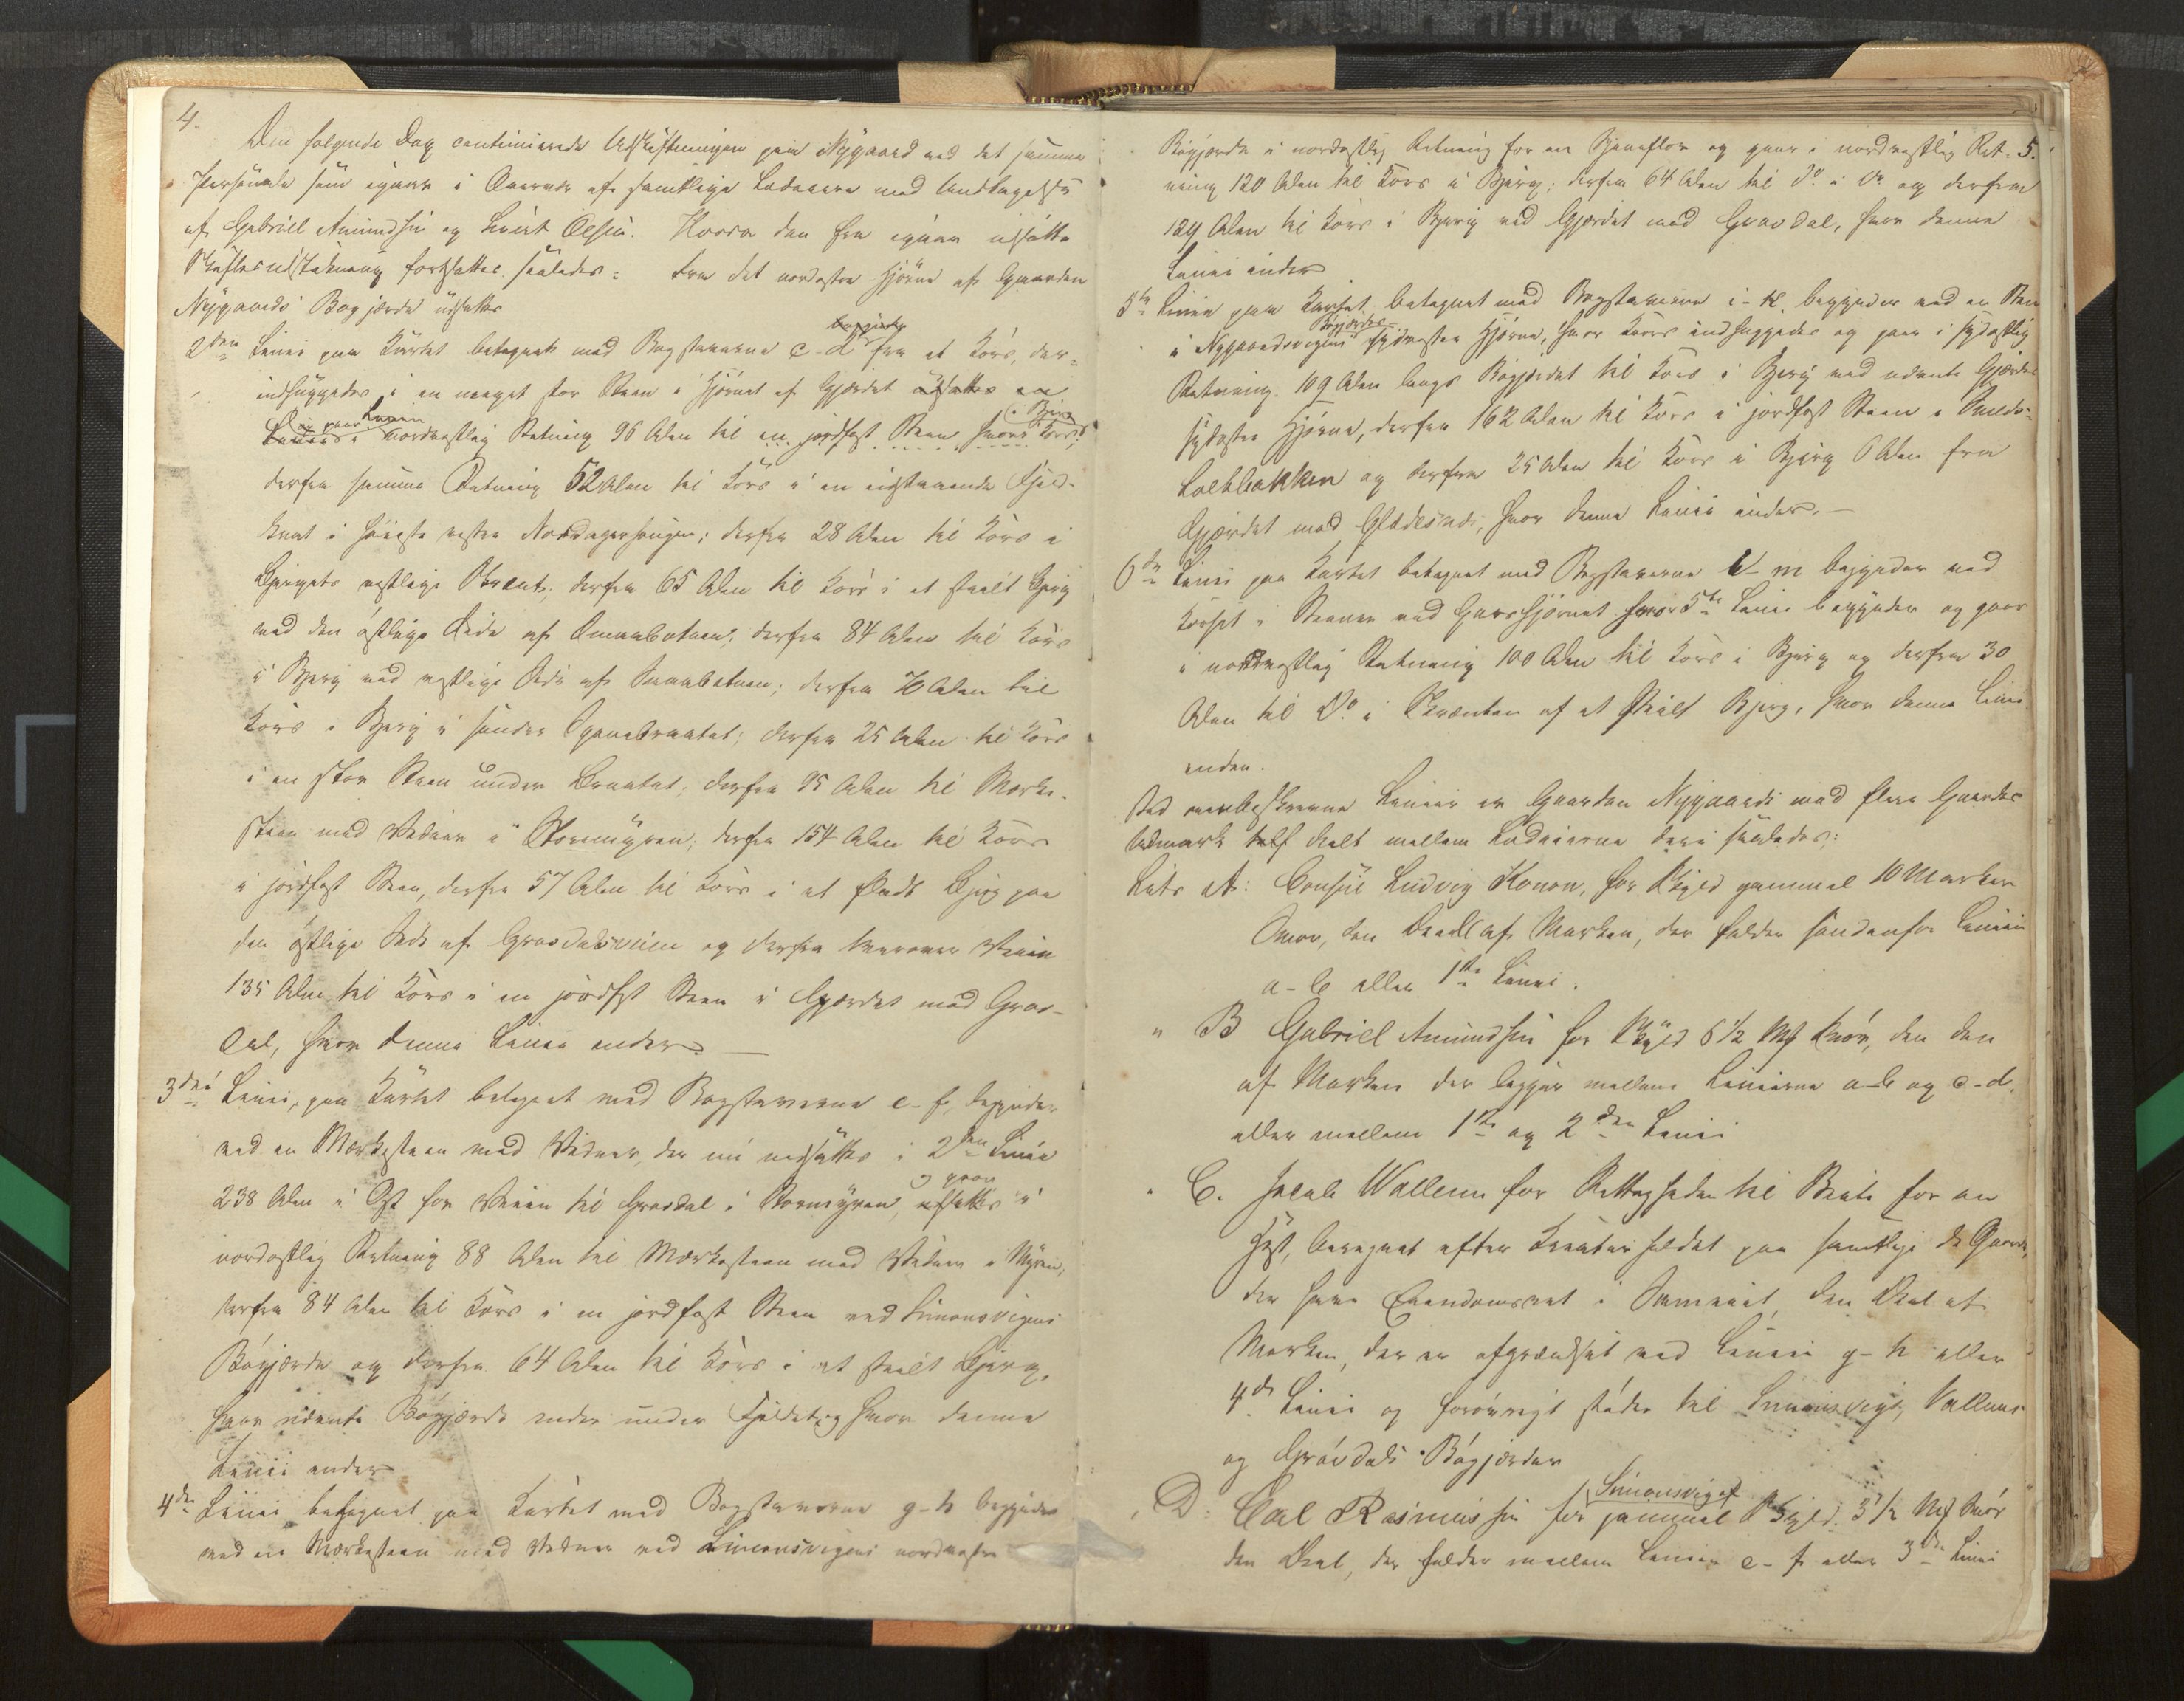 4.
Den følgende Dag continuerede Udskiftningen paa Nygaard ved det samme
Personale som igaar i Overvær af samtlige Lodeiere med Undtagelse
af Gabriel Amundsen og Sivert Olsen. Hvorda den fra igaar udsatte
fortsattes saaledes: Fra det nordøstre Hjørne af Gaarden
Nygaards Bøgjærde udsattes
2den Linie paa Kartet betegnet med Bogstaverne c-d begynder fra et Kors, der
indhuggedes i en meget stor Steen i Hjørnet af Gjerdet udsattes en
Linie og gaar Linien i nordvestlig Retning 96 Alen til en jordfast Steen hvori Kors i Bjerg
derfra samme Retning 52 Alen til Kors i en opstaaende Fjeld-
knat i høieste vestre; derfra 28 Alen til Kors i
Bjergets vestlige Skrent; derfra 65 Alen til Kors i et fladt Bjerg
ved den østlige Side af; derfra 84 Alen til Kors
i Bjerg ved vestlige Side af; derfra 76 Alen til
Kors i Bjerg i søndre; derfra 25 Alen til Kors
i en stor Steen under; derfra 95 Alen til Mærke-
steen med Vidner i Stormyren; derfra 154 Alen til Kors
i jordfast Steen, derfra 57 Alen til Kors i et fladt Bjerg paa
den østlige Side af Gravdalsveien og derfra tværover Veien
135 Alen til Kors i en jordfast Steen i Gjærdet mod Grav-
dal, hvor denne Linie ender. —
3die Linie, paa Kartet betegnet med Bogstaverne e-f, begynder
ved en Mærkesteen med Vidner, der nu nedsattes i 2den Linie
238 Alen i Øst for Veien til Gravdal i Stormyren, udsattes og gaar i
nordostlig Retning 88 Alen til Mærkesteen med Vidner i Myren;
derfra 84 Alen til Kors i en jordfast Steen ved Simonsvigens
Bøgjærde og derfra 64 Alen til Kors i et fladt Bjerg,
hvor nævnte Bøgjærde ender under Fjeldet og hvor denne
Linie ender
4de Linie betegnet paa Kartet med Bogstaverne g-h begynder
ved en Mærkesteen med Vidner ved Simonsvigens nordvestre
5.
Bøgjærde i nordostlig Retning for en og gaar i nordvestlig Ret-
ning 120 Alen til Kors i Bjerg; derfra 64 Alen til Do i Do og derfra
124 Alen til Kors i Bjerg ved Gjærdet mod Gravdal, hvor denne
Linie ender
5te Linie paa Kartet betegnet med Bogstaverne i-k begynder ved en Steen
i Nygaardsvigens Bøgjærdes sydvestre Hjørne, hvor Kors indhuggedes og gaar i sydostlig
Retning 109 Alen langs Bøgjærdet til Kors i Bjerg ved nævnte Gjærdes
sydøstre Hjørne, derfra 162 Alen til Kors i jordfast Steen i
og derfra 25 Alen til Kors i Bjerg 6 Alen fra
Gjærdet mod, hvor denne Linie ender. —
6te Linie paa Kartet betegnet med Bogstaverne l-m begynder ved
Korset i Steenen ved hvor 5te Linie begynder og gaar
i nordvestlig Retning 100 Alen til Kors i Bjerg og derfra 30
Alen til Do i Skrænten af et Bjerg, hvor denne Linie
ender.
Ved ovenbeskrevne Linier er Gaarden Nygaards med flere Gaardes
Udmark deelt mellem Lodeierne deri saaledes:
Litr A: Consul Ludvig Konow, for Skyld gammel 10 Marker
Smør, den Deel af Marken, der falder søndenfor Linien
a-b eller 1ste Linie.
" B Gabriel Amundsen for Skyld 6 1/2 Mk Smør, den Deel
af Marken der ligger mellem Linierne a-b og c-d.
eller mellem 1ste og 2den Linie
" C. Jacob Wallem for Rettigheden til Beite for en
Hest, beregnet efter Kreaturholdet paa samtlige de Gaarde,
der have Eiendomsret i Sameiet, den Deel af
Marken, der er afgrændset ved Linien g-h eller
4de Linie og forøvrigt støder til Simonsvigs, Vallems
og Gravdals Bøgjærder
" D: Carl Rasmussen for Simonsviget gammel Skyld 3 1/2 Mk Smør
den Deel, der falder mellem Linien e-f eller 3die Linie